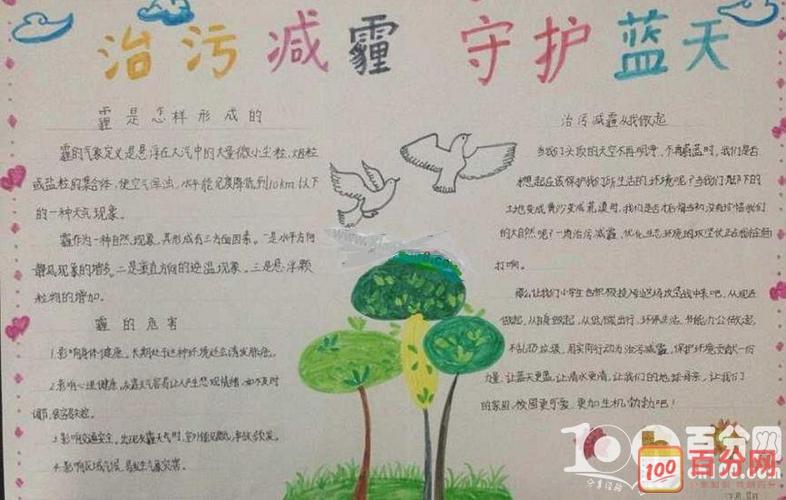 治污减霾 守护蓝天
霾是怎样形成的
霾的气象定义是悬浮在大气中的大量微小尘粒、烟粒
或盐粒的集合体，使空气浑浊，水平能见度降低到10km以下
的一种天气现象。
霾作为一种自然现象，其形成有三方面因素。一是水平方向
静风现象的增多。二是垂直方向的逆温现象。三是悬浮颗
粒物的增加。
霾的危害
1.影响身体健康。长期处于这种环境还会诱发肺癌。
2.影响心理健康。灰霾天气容易让人产生悲观情绪，如不及时
调节，很容易失控。
3.影响交通安全。出现灰霾天气时，室外能见度低，事故频发。
4.影响区域气候，易发生气象灾害。
治污减霾从我做起
当我们头顶的天空不再明净，不再蔚蓝时，我们是否
想起应该保护我们所生活的环境呢？当我们脚下的
土地变成黄沙变成荒漠时，我们是否才后悔当初没有珍惜我们
的大自然呢？一场治污减霾，优化生态环境的攻坚仗正在我们全面
打响。
那么让我们小学生也积极投入到这场攻坚战中来吧，从现在
做起，从自身做起，从低碳出行、环保生活、节能办公做起，
不乱扔垃圾，用实际行动为治污减霾，保护环境贡献一份
力量，让蓝天更蓝，让清水更清，让我们的地球母亲，让我们
的家园、校园更可爱，更加生机勃勃吧！
100百分网
100 百分网